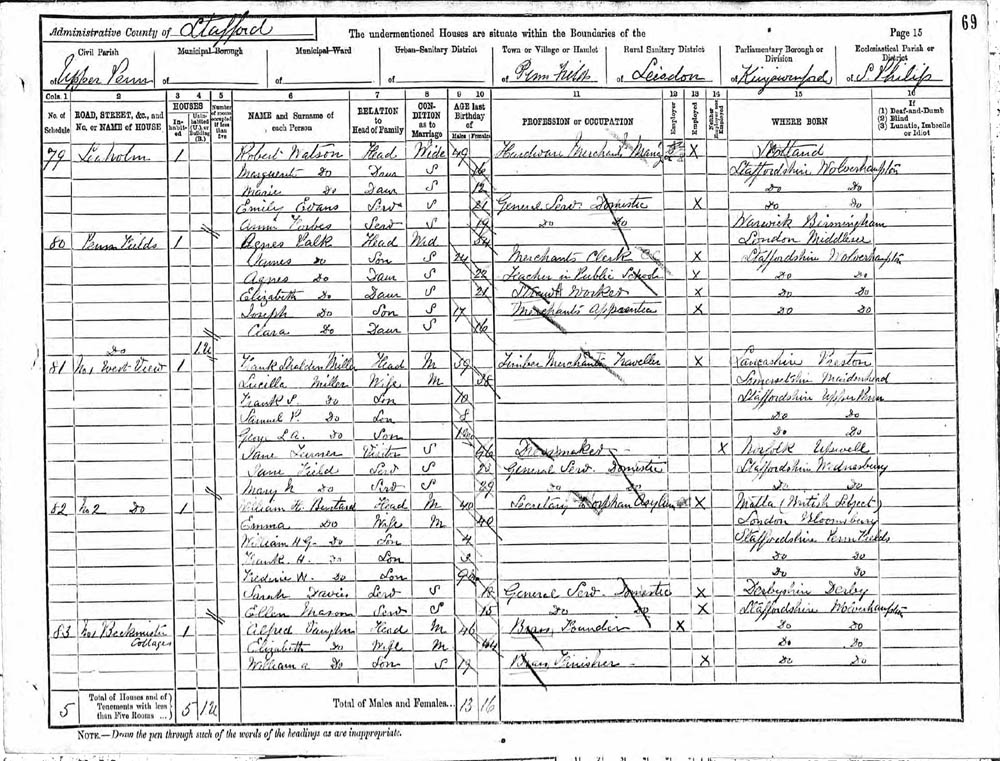 69
Administrative County of Stafford The undermentioned Houses are situate within the Boundaries of the Page 15
Civil Parish Municipal Borough Municipal Ward Urban Sanitary District Town or Village or Hamlet Rural Sanitary District Parliamentary Borough or Division Ecclesiastical Parish or District
of Upper Penn of of of of Penn Fields of Seisdon of Kingswinford of S. Philip
Cols. 1 2 3 4 5 6 7 8 9 10 11 12 13 14 15 16
No. of Schedule ROAD, STREET, &c., and No. or NAME of HOUSE HOUSES Inhabited Uninhabited (U.) or Building (B.) Number of rooms occupied if less than five NAME and Surname of each Person RELATION to Head of Family CONDITION as to Marriage AGE last Birthday of Males Females PROFESSION or OCCUPATION Employer Employed Neither Employer nor Employed WHERE BORN If (1) Deaf-and-Dumb (2) Blind (3) Lunatic, Imbecile or Idiot
79 1 Robert Watson Head Widr 49 Hardware Merchant X Scotland
Marguerite Do Daur S 16 Staffordshire Wolverhampton
Marie Do Daur S 12 Do Do
Emily Evans Serv S 21 General Serv Domestic X Do Do
Forbes Serv S 19 Do Do Warwick Birmingham
80 Penn Fields 1 Agnes Palk Head Wid 54 London Middlesex
Do Son S 24 Merchants Clerk X Staffordshire Wolverhampton
Agnes Do Daur S 22 Teacher in Public School X Do Do
Elizabeth Do Daur S 21 Worker X Do Do
Joseph Do Son S 17 Merchants Apprentice X Do Do
Clara Do Daur S 16
Do 1U
81 No 1 West View 1 Frank Miller Head M 39 Timber Merchants Traveller X Lancashire Preston
Lucilla Miller Wife M 38 Maidenhead
Frank S. Do Son 10 Staffordshire Upper Penn
Samuel P. Do Son 8 Do Do
George L A. Do Son Do Do
Jane Turner Visitor S 46 Dressmaker X Norfolk Upwell
Jane Field Serv S 23 General Serv. Domestic Staffordshire Wednesbury
Mary Do Serv S 29 Do Do Do Do
82 No 2 Do 1 William H. Head M 40 Secretary to Orphan Asylum X Malta (British Subject)
Emma Do Wife M 40 London Bloomsbury
William H G. Do Son 4 Staffordshire Penn Fields
Frank H. Do Son 3 Do Do
Frederic W. Do Son 9 Do Do
Sarah Davies Serv S 18 General Serv. Domestic X Derbyshire Derby
Ellen Mason Serv S 15 Do Do X Staffordshire Wolverhampton
83 No 1 Beckminster Cottages 1 Alfred Vaughan Head M 46 Brass Founder X Do Do
Elizabeth Do Wife M 44 Do Do
William A Do Son S 19 Brass Finisher X Do Do
5 Total of Houses and of Tenements with less than Five Rooms ... 5 1U Total of Males and Females... 13 16
NOTE.—Draw the pen through such of the words of the headings as are inappropriate.